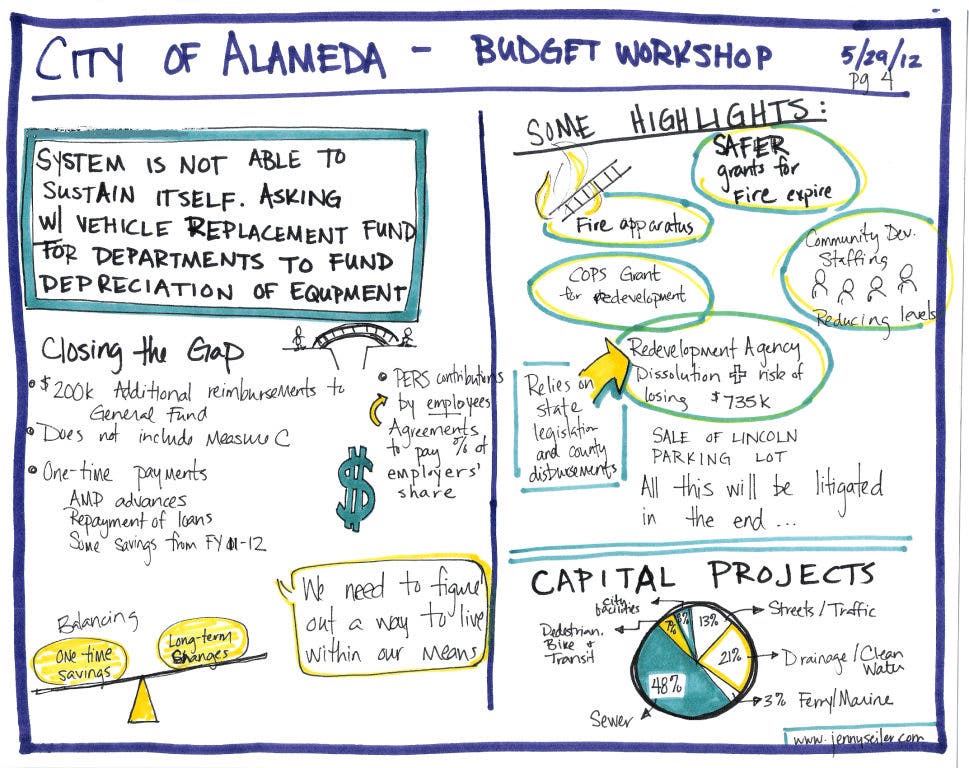 CITY OF ALAMEDA - BUDGET WORKSHOP
5/29/12
pg 4
SYSTEM IS NOT ABLE TO
SUSTAIN ITSELF. ASKING
W/ VEHICLE REPLACEMENT FUND
FOR DEPARTMENTS TO FUND
DEPRECIATION OF EQUPMENT
Closing the Gap
• $200k Additional reimbursements to
General Fund
• Does not include Measure C
• One-time payments
AMP advances
Repayment of loans
Some savings from FY 11-12
• PERS contributions
by employees
Agreements
to pay % of
employers'
share
$
Balancing
ONE time
savings
Long-term
changes
We need to figure
out a way to live
within our means
SOME HIGHLIGHTS:
Fire apparatus
SAFER
grants for
Fire expire
COPS Grant
for Redevelopment
Community Dev.
Staffing
Reducing levels
Relies on
state
legislation
and county
disbursements
Redevelopment Agency
Dissolution + risk of
losing $735k
SALE OF LINCOLN
PARKING LOT
All this will be litigated
in the end ...
CAPITAL PROJECTS
City
facilities
Pedestrian.
Bike +
Transit
Sewer
7%
13%
21%
48%
Streets/Traffic
Drainage/Clean
Water
3% Ferry/Marine
www.jennyseiler.com